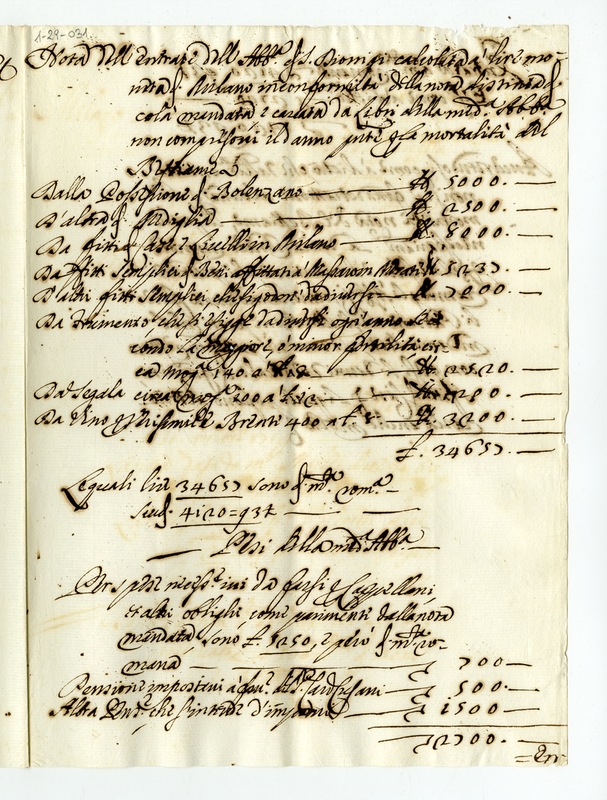 1-29-031
Nota dell'entrate dell'Abb.ª di S. Dionigi calcolata à lire mo-
neta di Milano in conformità della nota distinta
colà mandata e cavata da Libri della med.ª Abbª
non compresovi il danno p la mortalità del
Bestiame
Dalla Possessione di Bolenzano — ₶ 5000. —
D'altra di Mediglia — ₶ 2500. —
Da fitti di Case e Livelli in Milano — ₶ 8000. —
Da fitti semplici di Beni affittati à Massaro in ₶ 5237. —
D'altri fitti semplici che si da diversi — ₶ 7000. —
Da formento che si esigge da diversi ogni anno se-
condo la maggiore, ò minor fertilità, cir-
ca mog.ª 140 à ₶ 2520. —
Da Segala circa mog.ª 100 à ₶ 1200. —
Da Vino Brente 400 a £. 8. ₶ 3200. —
£. 34657. —
Lequali lire 34657 sono di m.ª rom.ª —
scudi 4120=93½ —
— Pesi della med.ª Abb.ª —
Per spese necess.e ivi da farsi, Cappellani,
et altri oblighi, come parimente dalla nota
mandata, sono £. 5250, e però di m.ª ro-
mana — 700 —
Pensione imposta ivi à fav.e 500. —
Altra Pens.e che s'intende d'imporre 1500 —
2700. —